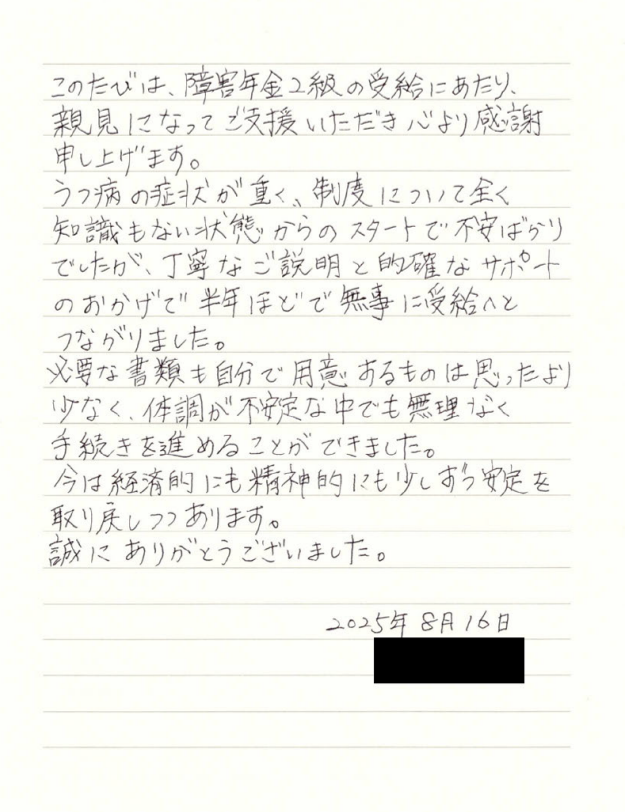 このたびは、障害年金2級の受給にあたり、
親見になってご支援いただき心より感謝
申し上げます。
うつ病の症状が重く、制度について全く
知識もない状態からのスタートで不安ばかり
でしたが、丁寧なご説明と的確なサポート
のおかげで半年ほどで無事に受給へと
つながりました。
必要な書類も自分で用意するものは思ったより
少なく、体調が不安定な中でも無理なく
手続きを進めることができました。
今は経済的にも精神的にも少しずつ安定を
取り戻しつつあります。
誠にありがとうございました。
2025年8月16日